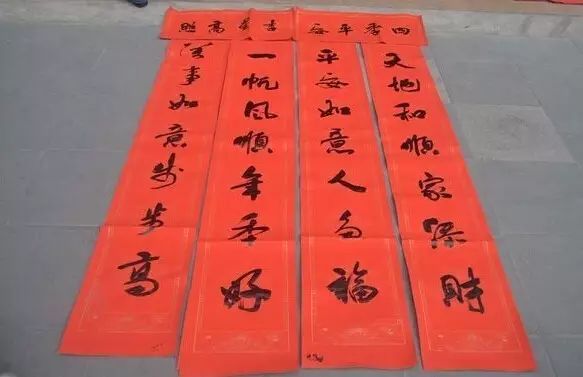 四季平安
吉星高照
天地和順家添財
平安如意人多福
一帆风順年年好
萬事如意步步高